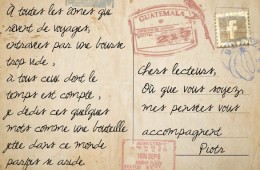 À toutes les âmes qui
rêvent de voyages,
entravées par une bourse
trop vide,
à tous ceux dont le
temps est compté,
je dédie ces quelques
mots comme une bouteille
jetée dans ce monde
parfois si aride
GUATEMALA
Chers lecteurs,
Où que vous soyez,
mes pensées vous
accompagnent
Piotr